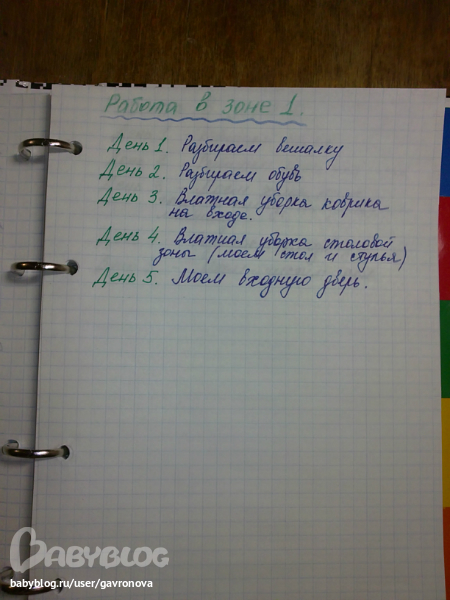 Работа в зоне 1.
День 1. Разбираем вешалку
День 2. Разбираем обувь
День 3. Влатная уборка коврика
на входе.
День 4. Влатная уборка столовой
зоны (моем стол и стулья)
День 5. Моем входную дверь.
BABYBLOG
babyblog.ru/user/gavronova